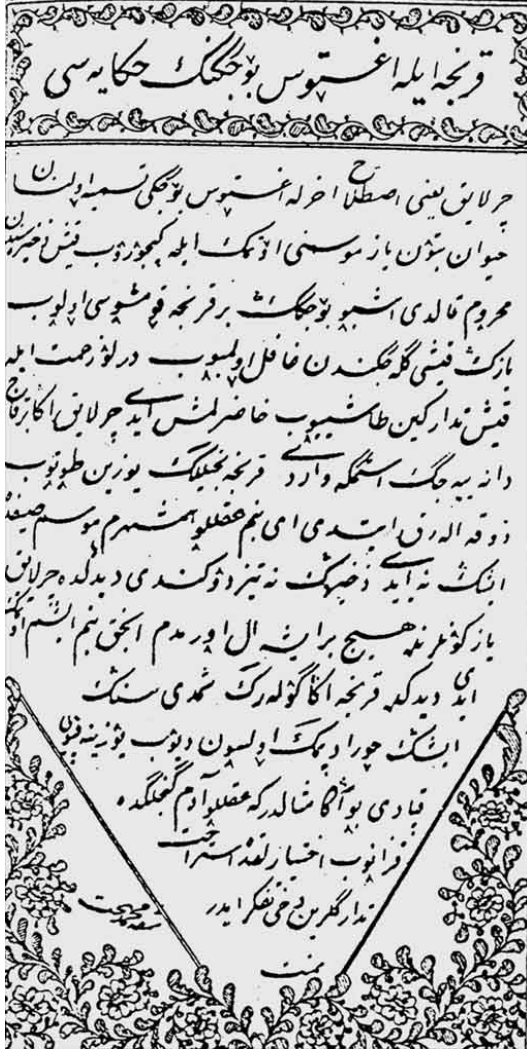 قرنجه ایله اغستوس بوجگنك حكایه سی
چرلایق یعنی اصطلاح اخرله اغستوس بوجكی تسمیه اولنان
حیوان بتون یاز موسمنی اوتمك ایله كچوروب قیش ذخیره سندن
محروم قالدی اشبو بوجكك بر قرنجه قومشوسی اولوب
یازك قیشی گله جگندن غافل اولمیوب درلو زحمت ایله
قیش تدارکین طاشییوب حاضرلمش ایدی چرلایق اكا برقاچ
دانه ییه جك استمگه واردی قرنجه بخیللك یوزین طوتوب
ذوقه اله رق ایتدی ای بنم عقللو همشهرم موسم صیفده
ایشك نه ایدی ذخیره ك نه تیز دوكندی دیدكده چرلایق
یاز كونلرنده هیچ بر ایشه ال اورمدم انجق بنم ایشم اوتمك
ایدی دیدكده قرنجه اكا گوله رك شمدی سنك
ایشك حورا دپمك اولسون دیوب یوزینه قپویی
قپادی بو اكا مثالدر كه عقللو آدم گنجلگده
قزانوب اختیارلقده استراحت
تداركلرین دخی تفكر ایدر
تمت